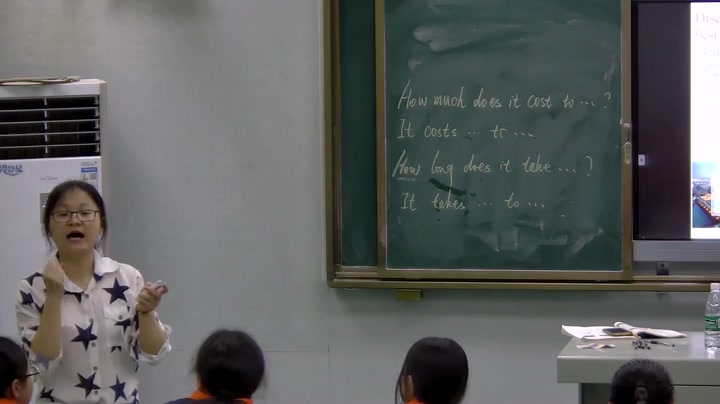 How much does it cost to ... ?
It costs ... to ...
How long does it take ... ?
It takes ... to ...